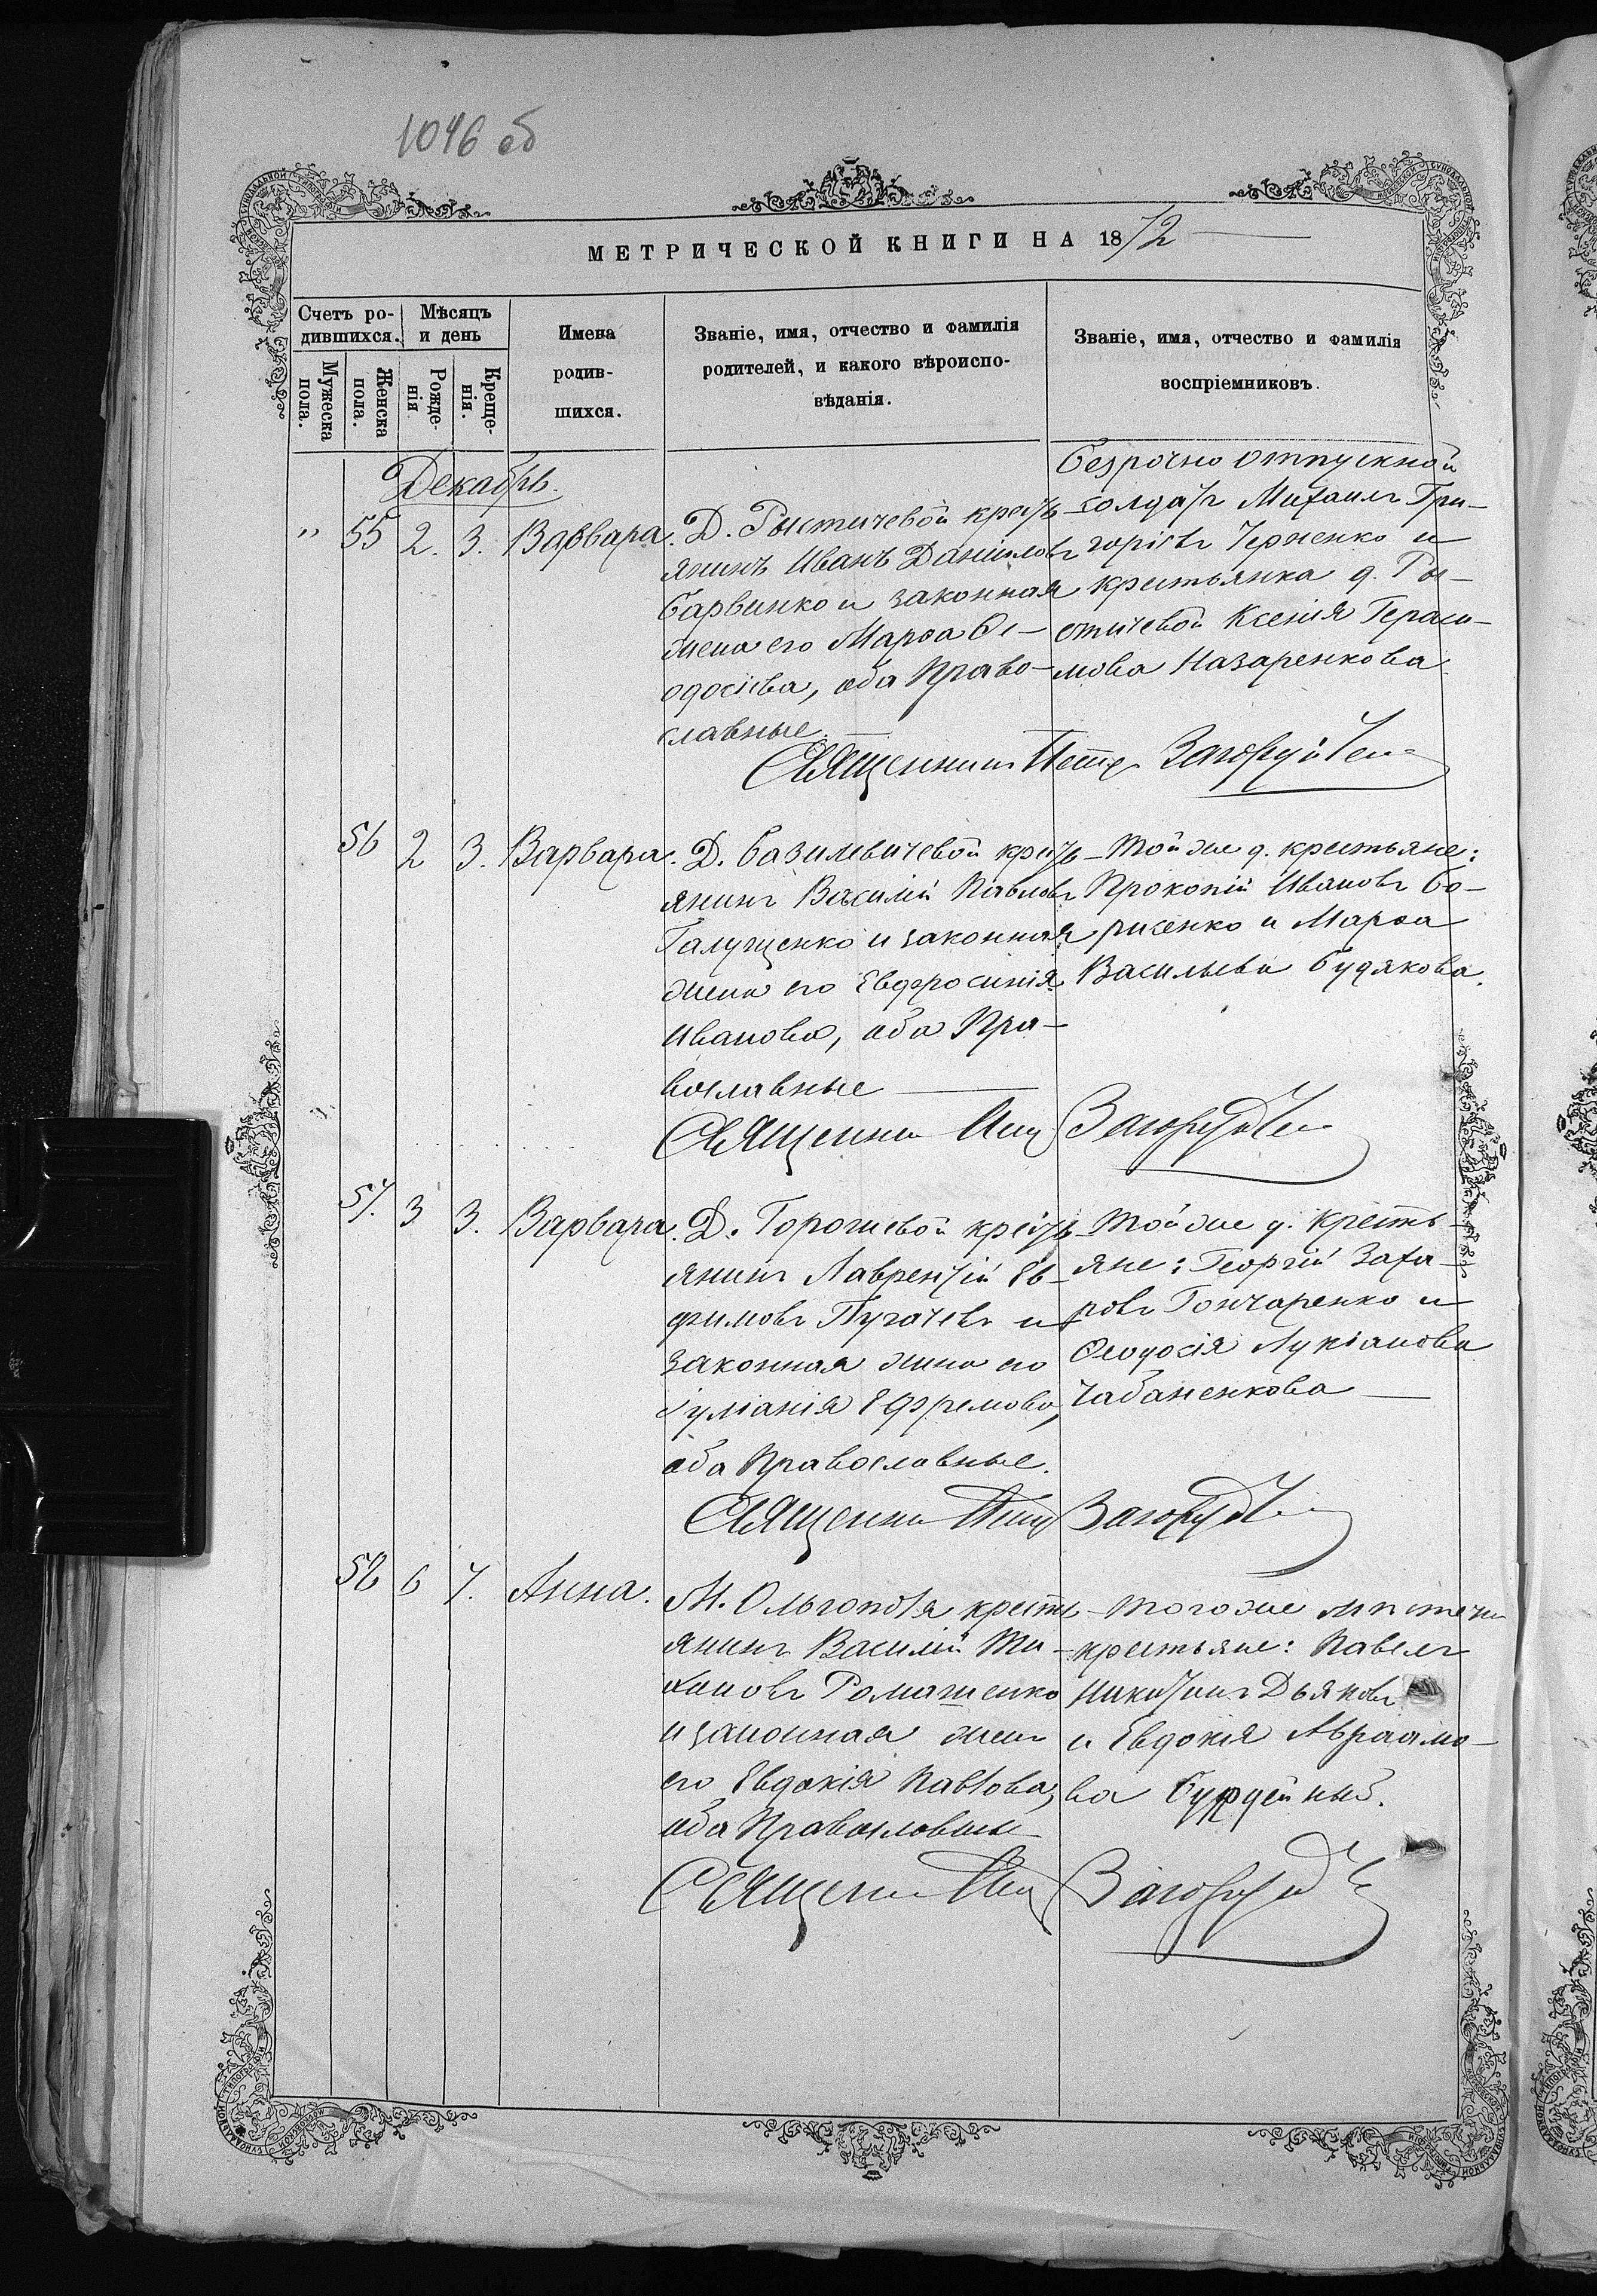 1046 об
МЕТРИЧЕСКОЙ КНИГИ НА 1872
Счетъ родившихся.
Мѣсяцъ и день
Имена родившихся.
Званіе, имя, отчество и фамилія родителей, и какого вѣроисповѣданія.
Званіе, имя, отчество и фамилія воспріемниковъ.
Мужеска пола.
Женска пола.
Рожденія
Крещенія.
Декабрь.
" 55 2. 3. Варвара.
Д. Рыстичевой кресть-
янинъ Иванъ Даніиловъ
Барвинко и законная
жена его Марѳа Ѳе-
одосіева, оба Право-
славные.
безрочно отпускной
солдатъ Михаилъ Гри-
горіевъ Черненко и
крестьянка д. Ры-
стичевой Ксенія Гераси-
мова Назаренкова
Священникъ Петръ
56 2 3. Варвара.
Д. Базилевичевой кресть-
янинъ Василій Павловъ
Галущенко и законная
жена его Евфросинія
Иванова, оба Пра-
вославные
Той же д. крестьяне:
Прокопій Ивановъ Бо-
рисенко и Марѳа
Васильева Будякова.
Священникъ
57. 3 3. Варвара.
Д. Горошевой кресть-
янинъ Лаврентій Ев-
фимовъ Пугачевъ и
законная жена его
Іуліанія Ефремова,
оба Православные.
Той же д. кресть-
яне: Георгій Заха-
ровъ Гончаренко и
Ѳеодосія Лукіанова
Чабаненкова
Священникъ
58 6 7. Анна.
М. Ольгополя кресть-
янинъ Василій Ти-
хоновъ Ромащенко
и законная жена
его Евдокія Павлова,
оба Православные
Того же мѣстечка
крестьяне: Павелъ
Никитинъ Дьяковъ
и Евдокія Авраамо-
ва
Священникъ